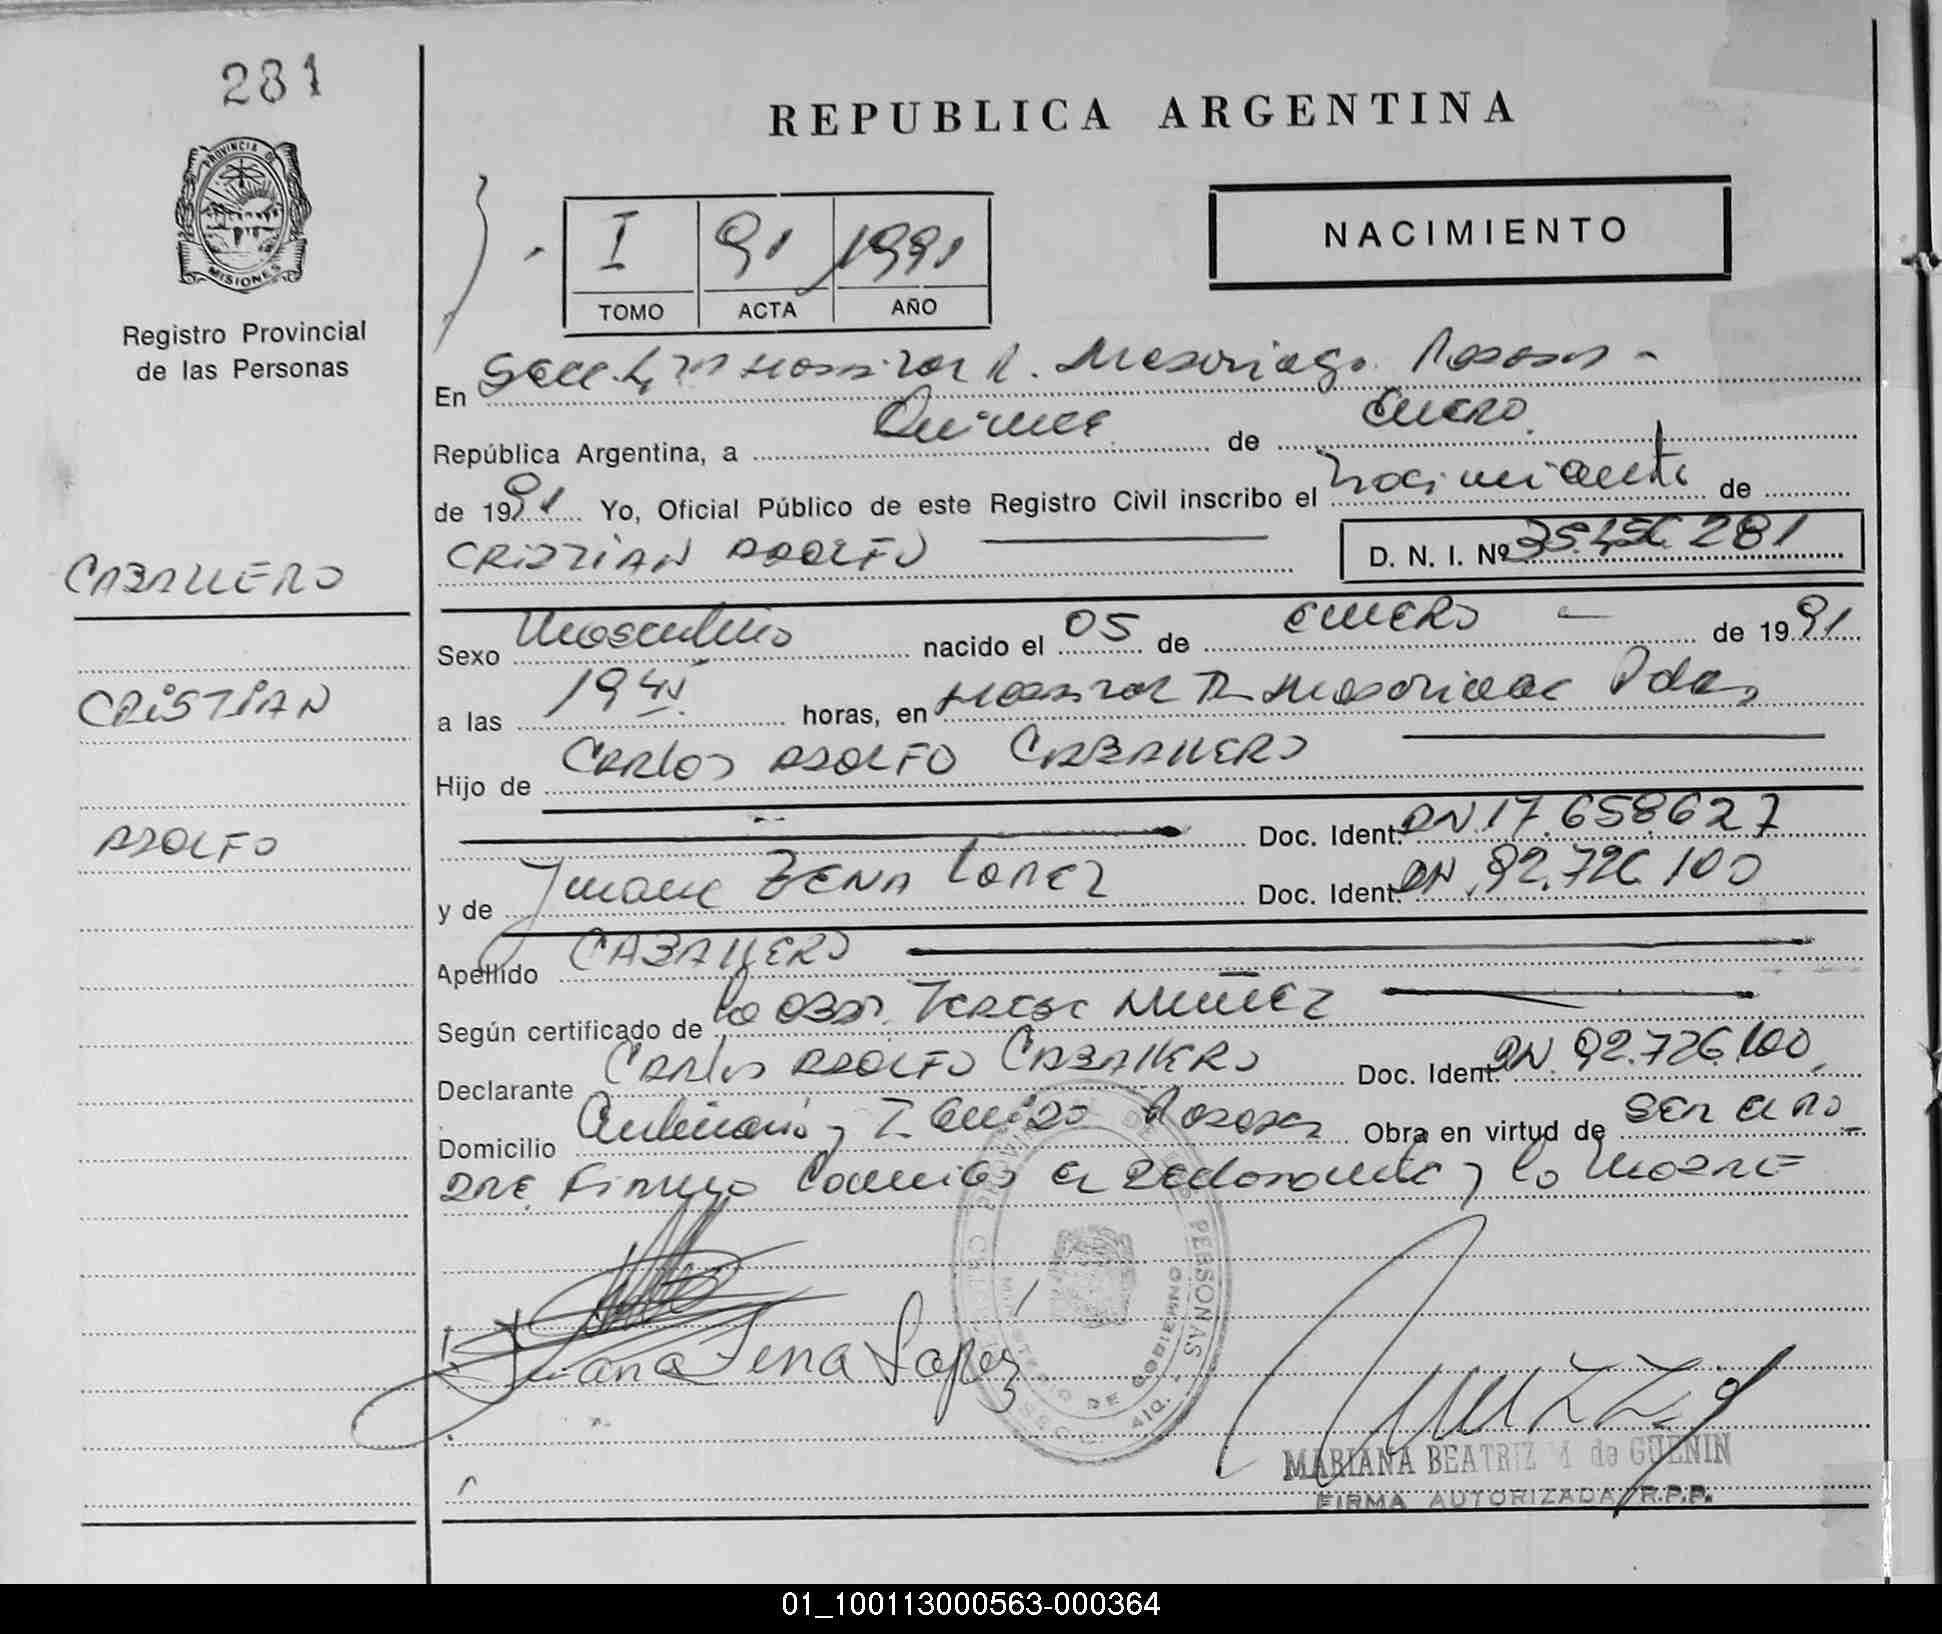 281
REPUBLICA ARGENTINA
PROVINCIA DE
MISIONES
Registro Provincial
de las Personas
I 91 1991
TOMO ACTA AÑO
NACIMIENTO
En Secc. Hospital R. Madariaga. Posadas -
República Argentina, a Quince de Enero.
de 1991 Yo, Oficial Público de este Registro Civil inscribo el nacimiento de
CRISTIAN ADOLFO D. N. I. Nº 35.456.281
CABALLERO
CRISTIAN
ADOLFO
Sexo Masculino nacido el 05 de ENERO - de 1991
a las 19 horas, en Hospital R. Madariaga Pdas
Hijo de CARLOS ADOLFO CABALLERO
Doc. Ident. DN 17.658627
y de Juana ZENA LOPEZ Doc. Ident. DN. 92.726.100
Apellido CABALLERO
Según certificado de la Obst. TERESA NUÑEZ
Declarante CARLOS ADOLFO CABALLERO Doc. Ident. DN. 92.726.100
Domicilio y Posadas Obra en virtud de ser el PA
DRE Firma conmigo el declarante y la MADRE
Juana Zena Lopez
REGISTRO PROVINCIAL DE LAS PERSONAS
MINISTERIO DE GOBIERNO
MARIANA BEATRIZ M de GUENIN
FIRMA AUTORIZADA R.P.P.
01_100113000563-000364